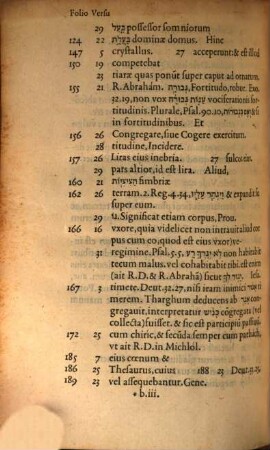 Folio Versu
29 בַּעַל possessor somniorum
124 22 בַּעֲלַת domina domus. Hinc
147 5 crystallus. 27 acceperunt: & est
150 19 competebat
23 tiaræ quas ponūt super caput ad ornatum.
155 21 R. Abrahám. גְבוּרָה, Fortitudo, robur. Exo.
32.19, non vox עֲנוֹת גְּבוּרָה vociferationis for
titudinis. Plurale, Psal. 90.10,
in fortitudinibus. Et
156 26 Congregare, siue Cogere exercitum.
28 titudine, Incidere.
157 26 Liras eius inebria. 27 sulcorum.
29 pars altior, id est lira. Aliud,
160 21 fimbriæ
162 26 terram. 2. Reg. 4.34, וַיִּגְהַר עָלָיו & expandit se
super eum.
29 u. Significat etiam corpus, Prou.
166 16 vxore, quia videlicet non intrauit
pus cum eo, quod est eius
31 regimine, Psal. 5.5, non habitabit
tecum malus. vel cohabitabit tibi. est enim
(ait R.D. & R. Abrahā) sicut
167 3 timete. Deut. 32.27, nisi iram inimici
merem. Thargum deducens ab
gregauit, interpretatur congregata (vel
collecta) fuisset. & sic est participiū
172 25 cum chiric, & secūda semper cum
vt ait R.D. in Michlol.
185 7 eius cœnum &
186 25 Thesaurus, cuius 188 23 Deut.
189 23 vel assequebantur. Gene.
* b.iii.